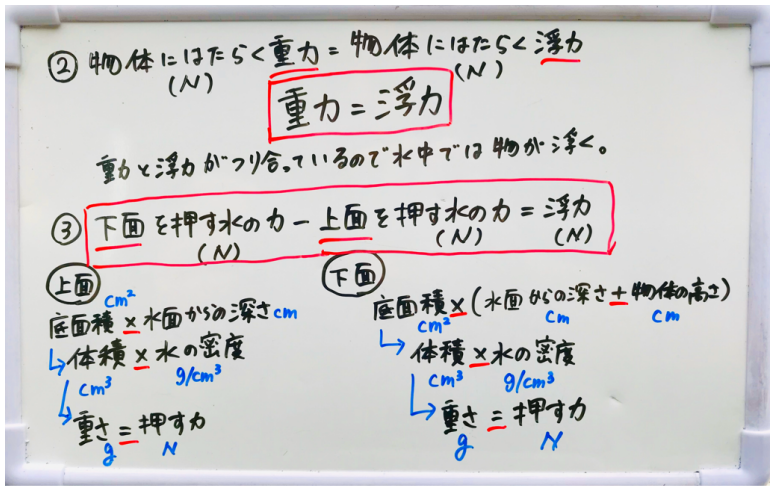 ② 物体にはたらく重力 = 物体にはたらく浮力
(N) (N)
重力 = 浮力
重力と浮力がつり合っているので水中では物が浮く。
③ 下面を押す水の力 - 上面を押す水の力 = 浮力
(N) (N) (N)
上面
cm²
底面積 × 水面からの深さcm
↳ 体積 × 水の密度
cm³ g/cm³
↳ 重さ = 押す力
g N
下面
底面積 × (水面からの深さ + 物体の高さ)
cm² cm cm
↳ 体積 × 水の密度
cm³ g/cm³
↳ 重さ = 押す力
g N